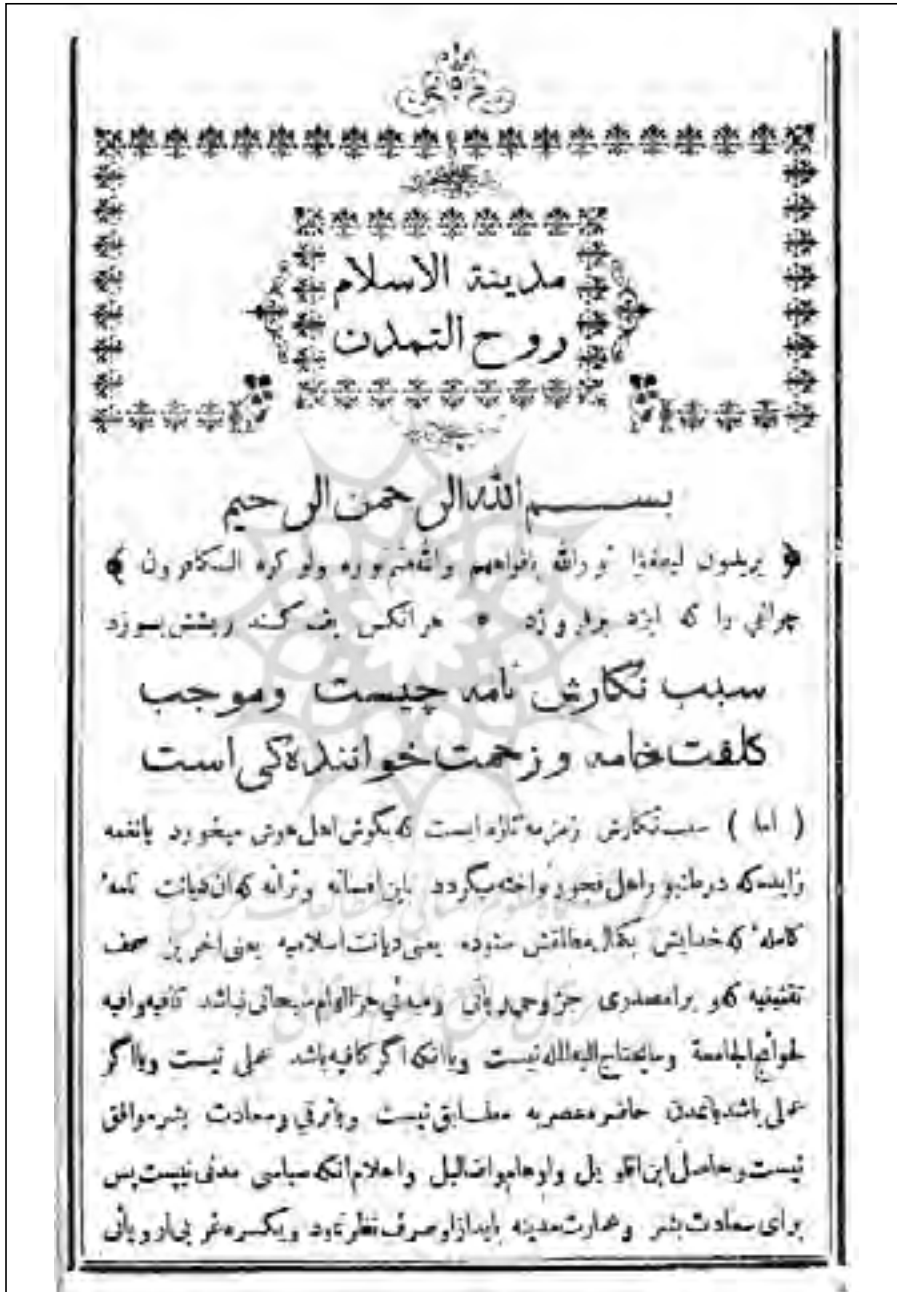 مدينة الاسلام
روح التمدن
بســـم الله الرحمن الرحيم
﴿ يريدون ليطفؤا نورالله بافواههم والله متم نوره ولو كره الكافرون ﴾
چراغی را که ایزد برفروزد * هرانکس پف کند ریشش بسوزد
سبب نگارش نامه چیست وموجب
کلفت خامه و زحمت خواننده کی است
( اما ) سبب نگارش زمزمه تازه ایست که بگوش اهل هوش میخورد یانغمه
که درطنبور اهل فجور نواخته میگردد باین افسانه وترانه که ان دیانت تامه
کامله که خدایش بکمال مطلقش ستوده یعنی دیانت اسلامیه یعنی اخرین صحف
تقنینیه که ویرا مصدری جز وحی ربانی ومبدئی جز الهام سبحانی نباشد کافیه وافیه
لحوائج الجامعة ومایحتاج الیه المله نیست ویاانکه اگر کافیه باشد عملی نیست ویااگر
عملی باشد باتمدن حاضره عصریه مطابق نیست ویاترقی وسعادت بشر موافق
نیست وحاصل این اقاویل واوهام واضالیل واحلام انکه سیاسی مدنی نیست پس
برای سعادت بشر وعمارت مدینه باید ازاو صرف نظر نمود ویکسره غربی اروپائی